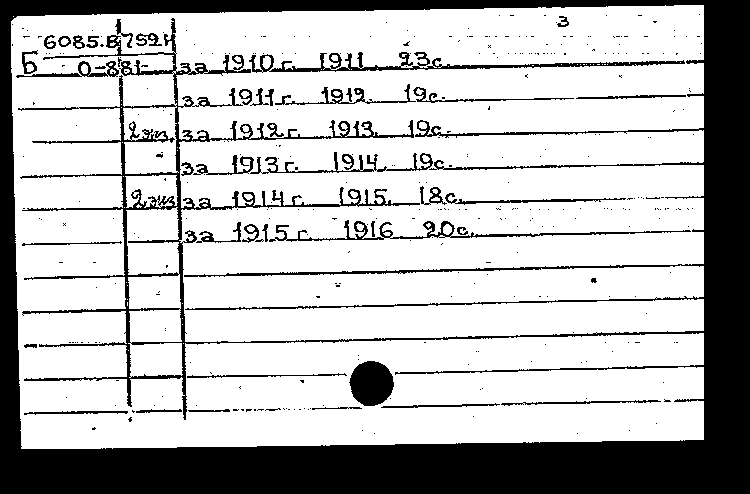 3
6085.В 759Н
Б 0-881 за 1910 г. 1911. 23с.
за 1911г. 1912. 19с.
2экз. за 1912г. 1913. 19с.
за 1913г. 1914. 19с.
2экз за 1914г. 1915. 18с.
за 1915г. 1916 20с.